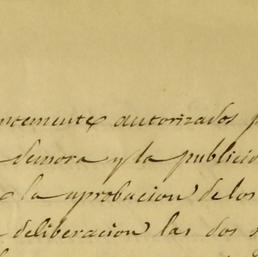 ntemente autorizados p
demora y la publici
la aprobacion de los
deliberacion las dos